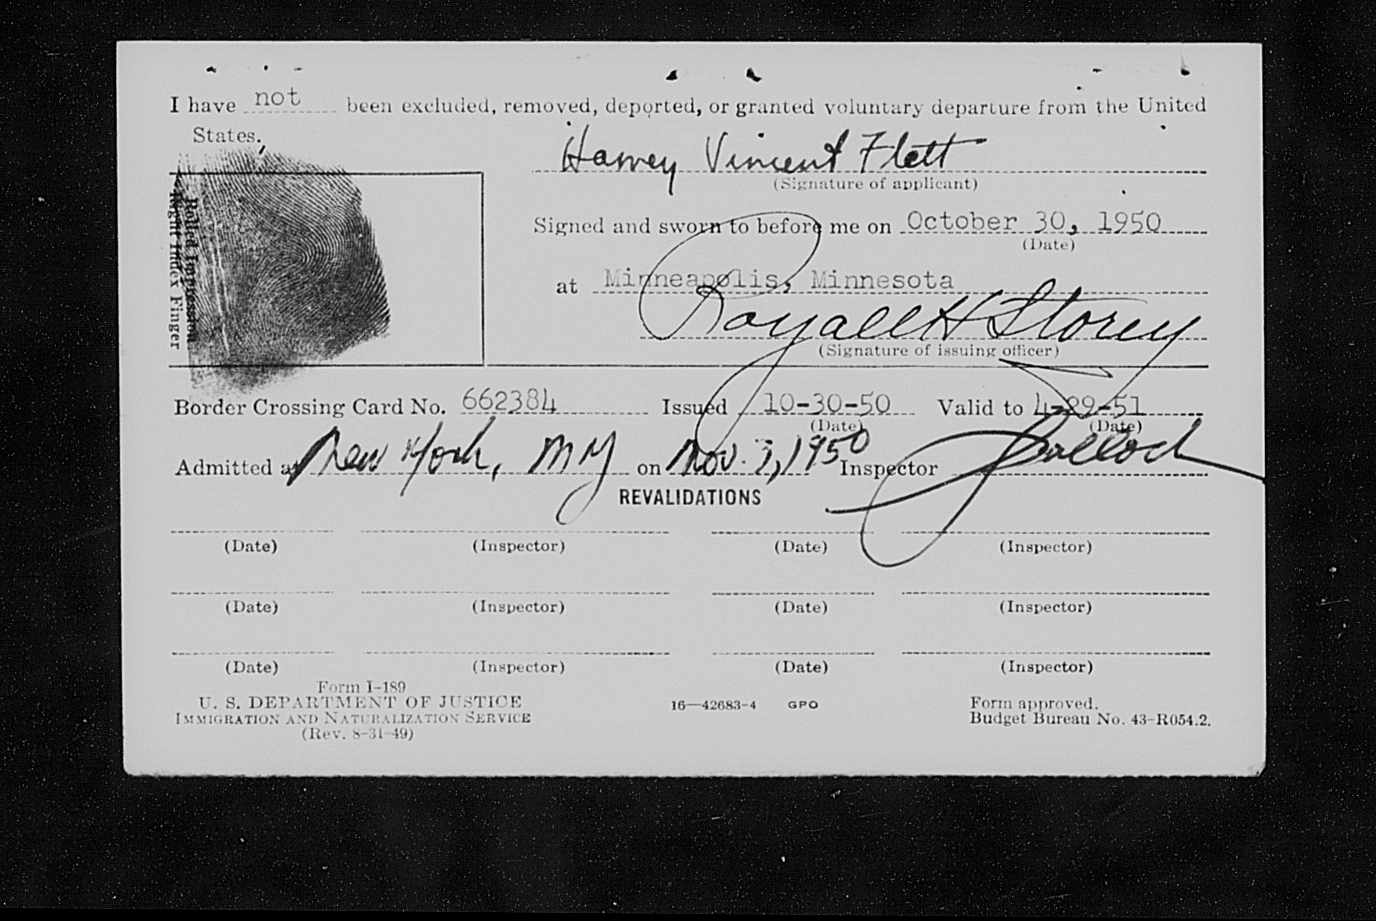 I have not been excluded, removed, deported, or granted voluntary departure from the United
States.
Harvey Vincent Flett
(Signature of applicant)
Rolled Impression
Right Index Finger
Signed and sworn to before me on October 30, 1950
(Date)
at Minneapolis, Minnesota
Royall H Storey
(Signature of issuing officer)
Border Crossing Card No. 662384 Issued 10-30-50 Valid to 4-29-51
(Date) (Date)
Admitted at New York, NY on Nov. 7, 1950 Inspector
REVALIDATIONS
(Date) (Inspector) (Date) (Inspector)
(Date) (Inspector) (Date) (Inspector)
(Date) (Inspector) (Date) (Inspector)
Form I-189
U. S. DEPARTMENT OF JUSTICE
IMMIGRATION AND NATURALIZATION SERVICE
(Rev. 8-31-49)
16—42683-4 GPO
Form approved.
Budget Bureau No. 43-R054.2.